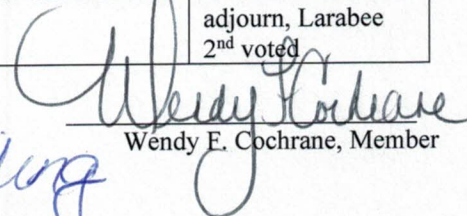 adjourn, Larabee
2nd voted
Wendy F Cochrane
Wendy E. Cochrane, Member